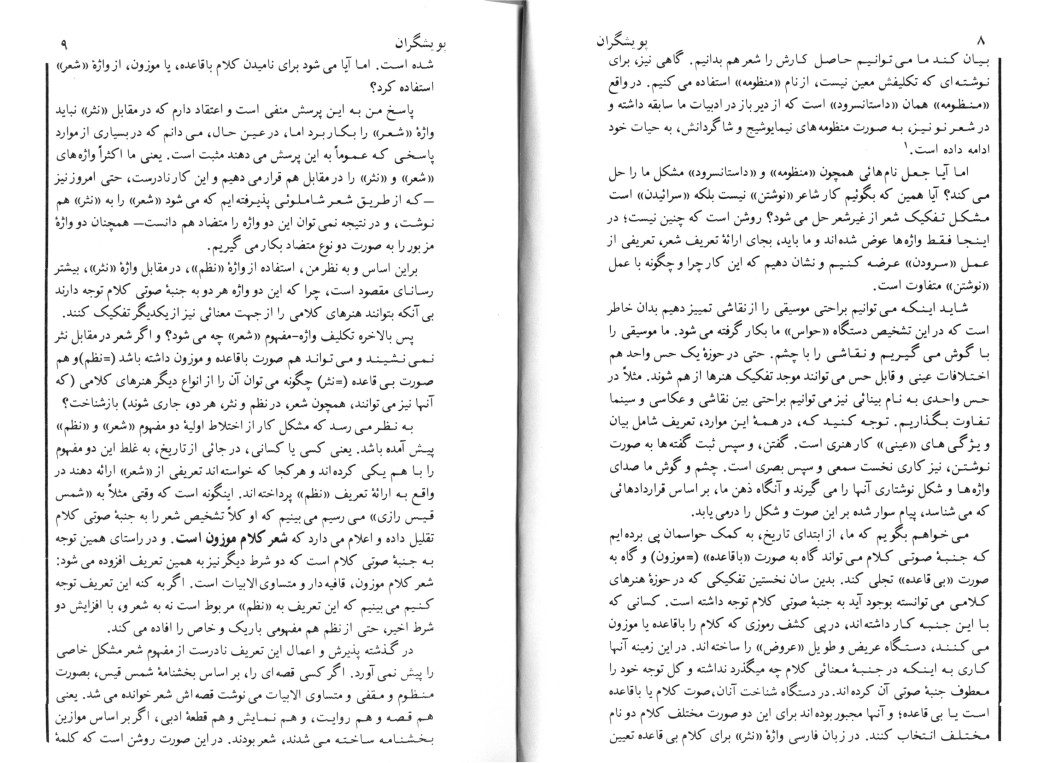 ۸
پویشگران
بیان کند ما می توانیم حاصل کارش را شعر هم بدانیم. گاهی نیز، برای
نوشته ای که تکلیفش معین نیست، از نام «منظومه» استفاده می کنیم. در واقع
«منظومه» همان «داستانسرود» است که از دیر باز در ادبیات ما سابقه داشته و
در شعر نو نیز، به صورت منظومه های نیمایوشیج و شاگردانش، به حیات خود
ادامه داده است.۱
اما آیا جعل نام هائی همچون «منظومه» و «داستانسرود» مشکل ما را حل
می کند؟ آیا همین که بگوئیم کار شاعر «نوشتن» نیست بلکه «سرائیدن» است
مشکل تفکیک شعر از غیرشعر حل می شود؟ روشن است که چنین نیست؛ در
اینجا فقط واژه ها عوض شده اند و ما باید، بجای ارائهٔ تعریف شعر، تعریفی از
عمل «سرودن» عرضه کنیم و نشان دهیم که این کار چرا و چگونه با عمل
«نوشتن» متفاوت است.
شاید اینکه می توانیم براحتی موسیقی را از نقاشی تمییز دهیم بدان خاطر
است که در این تشخیص دستگاه «حواس» ما بکار گرفته می شود. ما موسیقی را
با گوش می گیریم و نقاشی را با چشم. حتی در حوزهٔ یک حس واحد هم
اختلافات عینی و قابل حس می توانند موجد تفکیک هنرها از هم شوند. مثلاً در
حس واحدی به نام بینائی نیز می توانیم براحتی بین نقاشی و عکاسی و سینما
تفاوت بگذاریم. توجه کنید که، در همهٔ این موارد، تعریف شامل بیان
ویژگی های «عینی» کار هنری است. گفتن، و سپس ثبت گفته ها به صورت
نوشتن، نیز کاری نخست سمعی و سپس بصری است. چشم و گوش ما صدای
واژه ها و شکل نوشتاری آنها را می گیرند و آنگاه ذهن ما، بر اساس قراردادهائی
که می شناسد، پیام سوار شده بر این صوت و شکل را درمی یابد.
می خواهم بگویم که ما، از ابتدای تاریخ، به کمک حواسمان پی برده ایم
که جنبهٔ صوتی کلام می تواند گاه به صورت «باقاعده» (=موزون) و گاه به
صورت «بی قاعده» تجلی کند. بدین سان نخستین تفکیکی که در حوزهٔ هنرهای
کلامی می توانسته بوجود آید به جنبهٔ صوتی کلام توجه داشته است. کسانی که
با این جنبه کار داشته اند، در پی کشف رموزی که کلام را باقاعده یا موزون
می کنند، دستگاه عریض و طویل «عروض» را ساخته اند. در این زمینه آنها
کاری به اینکه در جنبهٔ معنائی کلام چه میگذرد نداشته و کل توجه خود را
معطوف جنبهٔ صوتی آن کرده اند. در دستگاه شناخت آنان، صوت کلام یا باقاعده
است یا بی قاعده؛ و آنها مجبور بوده اند برای این دو صورت مختلف کلام دو نام
مختلف انتخاب کنند. در زبان فارسی واژهٔ «نثر» برای کلام بی قاعده تعیین
پویشگران
۹
شده است. اما آیا می شود برای نامیدن کلام باقاعده، یا موزون، از واژهٔ «شعر»
استفاده کرد؟
پاسخ من به این پرسش منفی است و اعتقاد دارم که در مقابل «نثر» نباید
واژهٔ «شعر» را بکار برد اما، در عین حال، می دانم که در بسیاری از موارد
پاسخی که عموماً به این پرسش می دهند مثبت است. یعنی ما اکثراً واژه های
«شعر» و «نثر» را در مقابل هم قرار می دهیم و این کار نادرست، حتی امروز نیز
—که از طریق شعر شاملوئی پذیرفته ایم که می شود «شعر» را به «نثر» هم
نوشت، و در نتیجه نمی توان این دو واژه را متضاد هم دانست— همچنان دو واژهٔ
مزبور را به صورت دو نوع متضاد بکار می گیریم.
براین اساس و به نظر من، استفاده از واژهٔ «نظم»، در مقابل واژهٔ «نثر»، بیشتر
رسانای مقصود است، چرا که این دو واژه هر دو به جنبهٔ صوتی کلام توجه دارند
بی آنکه بتوانند هنرهای کلامی را از جهت معنائی نیز از یکدیگر تفکیک کنند.
پس بالاخره تکلیف واژه-مفهوم «شعر» چه می شود؟ و اگر شعر در مقابل نثر
نمی نشیند و می تواند هم صورت باقاعده و موزون داشته باشد (=نظم) و هم
صورت بی قاعده (=نثر) چگونه می توان آن را از انواع دیگر هنرهای کلامی (که
آنها نیز می توانند، همچون شعر، در نظم و نثر، هر دو، جاری شوند) بازشناخت؟
به نظر می رسد که مشکل کار از اختلاط اولیهٔ دو مفهوم «شعر» و «نظم»
پیش آمده باشد. یعنی کسی یا کسانی، در جائی از تاریخ، به غلط این دو مفهوم
را با هم یکی کرده اند و هرکجا که خواسته اند تعریفی از «شعر» ارائه دهند در
واقع به ارائهٔ تعریف «نظم» پرداخته اند. اینگونه است که وقتی مثلاً به «شمس
قیس رازی» می رسیم می بینیم که او کلاً تشخیص شعر را به جنبهٔ صوتی کلام
تقلیل داده و اعلام می دارد که شعر کلام موزون است. و در راستای همین توجه
به جنبهٔ صوتی کلام است که دو شرط دیگر نیز به همین تعریف افزوده می شود:
شعر کلام موزون، قافیه دار و متساوی الابیات است. اگر به کنه این تعریف توجه
کنیم می بینیم که این تعریف به «نظم» مربوط است نه به شعر و، با افزایش دو
شرط اخیر، حتی از نظم هم مفهومی باریک و خاص را افاده می کند.
در گذشته پذیرش و اعمال این تعریف نادرست از مفهوم شعر مشکل خاصی
را پیش نمی آورد. اگر کسی قصه ای را، بر اساس بخشنامهٔ شمس قیس، بصورت
منظوم و مقفی و متساوی الابیات می نوشت قصه اش شعر خوانده می شد. یعنی
هم قصه و هم روایت، و هم نمایش و هم قطعهٔ ادبی، اگر بر اساس موازین
بخشنامه ساخته می شدند، شعر بودند. در این صورت روشن است که کلمهٔ